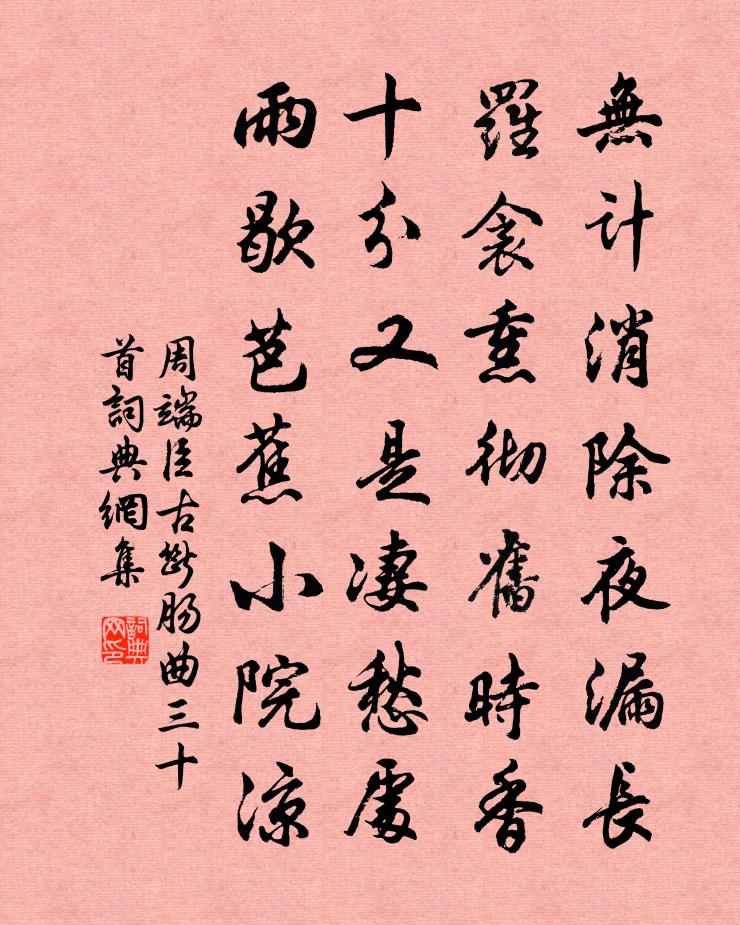 無計消除夜漏長
羅衾熏徹舊時香
十分又是淒愁處
雨歇芭蕉小院涼
周端臣古斷腸曲三十
首詞典網集
詞典网印